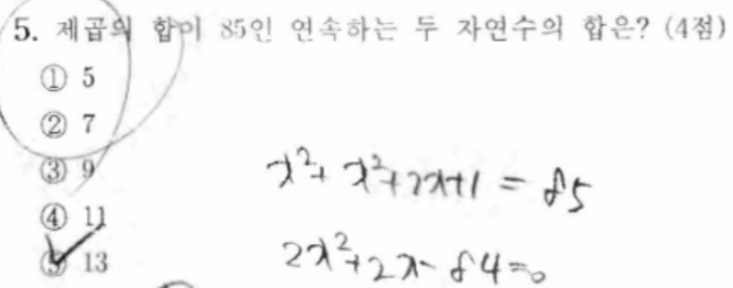 5. 제곱의 합이 85인 연속하는 두 자연수의 합은? (4점)
① 5
② 7
③ 9
④ 11
⑤ 13
x²+x²+2x+1=85
2x²+2x-84=0